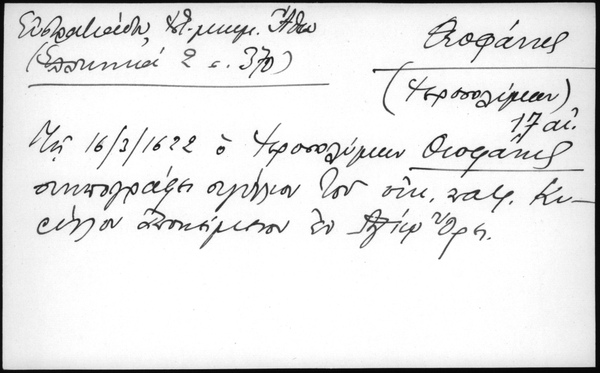 Εὐστρατιάδη, Ἱστ. μνημ. Ἄθω
(Ἑλληνικά 2 σ. 370)
Θεοφάνης
(Ἱεροσολύμων)
17 αἰ.
Τῇ 16/3/1622 ὁ Ἱεροσολύμων Θεοφάνης
συνυπογράφει σιγίλλιον τοῦ οἰκ. πατρ. Κυ-
ρίλλου ἀποκείμενον ἐν Ἁγίῳ Ὄρει.